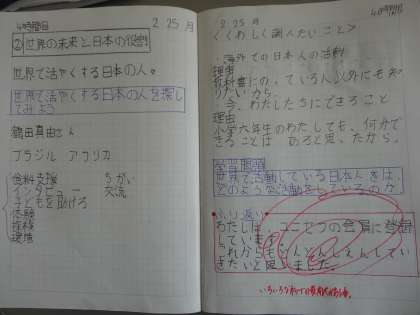 4時間目
2 25 月
②世界の未来と日本の役割
世界で活やくする日本の人。
世界で活やくする日本の人を探し
てみよう
鶴田真由さん
ブラジル アフリカ
食料支援 ちがい
インタビュー 交流
子どもを助けろ
体験
環境
2 25 月
くわしく調べたいこと
・海外での日本人の活動
理由
教科書にのっている人以外にも知
りたいから。
・今、わたしたちにできること
理由
小学六年生のわたしでも、何かで
きることは あると思ったから。
学習問題
世界で活動している日本人は、
どのような活動をしているのか
ふり返り
わたしは、ユニセフの会員に登録
しています。
これからもどんどんしえんしてい
きたいと思いました。